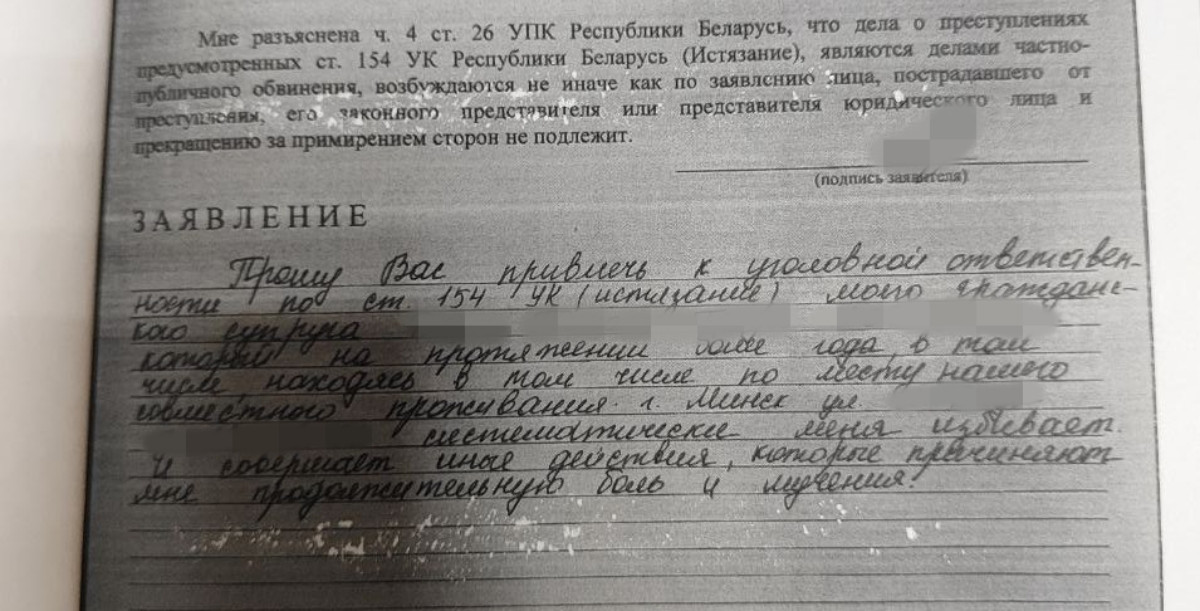 Мне разъяснена ч. 4 ст. 26 УПК Республики Беларусь, что дела о преступлениях
предусмотренных ст. 154 УК Республики Беларусь (Истязание), являются делами частно-
публичного обвинения, возбуждаются не иначе как по заявлению лица, пострадавшего от
преступления, его законного представителя или представителя юридического лица и
прекращению за примирением сторон не подлежит.
(подпись заявителя)
ЗАЯВЛЕНИЕ
Прошу Вас привлечь к уголовной ответствен-
ности по ст. 154 УК (истязание) моего гражданс-
кого супруга
который на протяжении более года, в том
числе, находясь в том числе по месту нашего
совместного проживания г. Минск ул.
систематически меня избивает.
И совершает иные действия, которые причиняют
мне продолжительную боль и мучения.